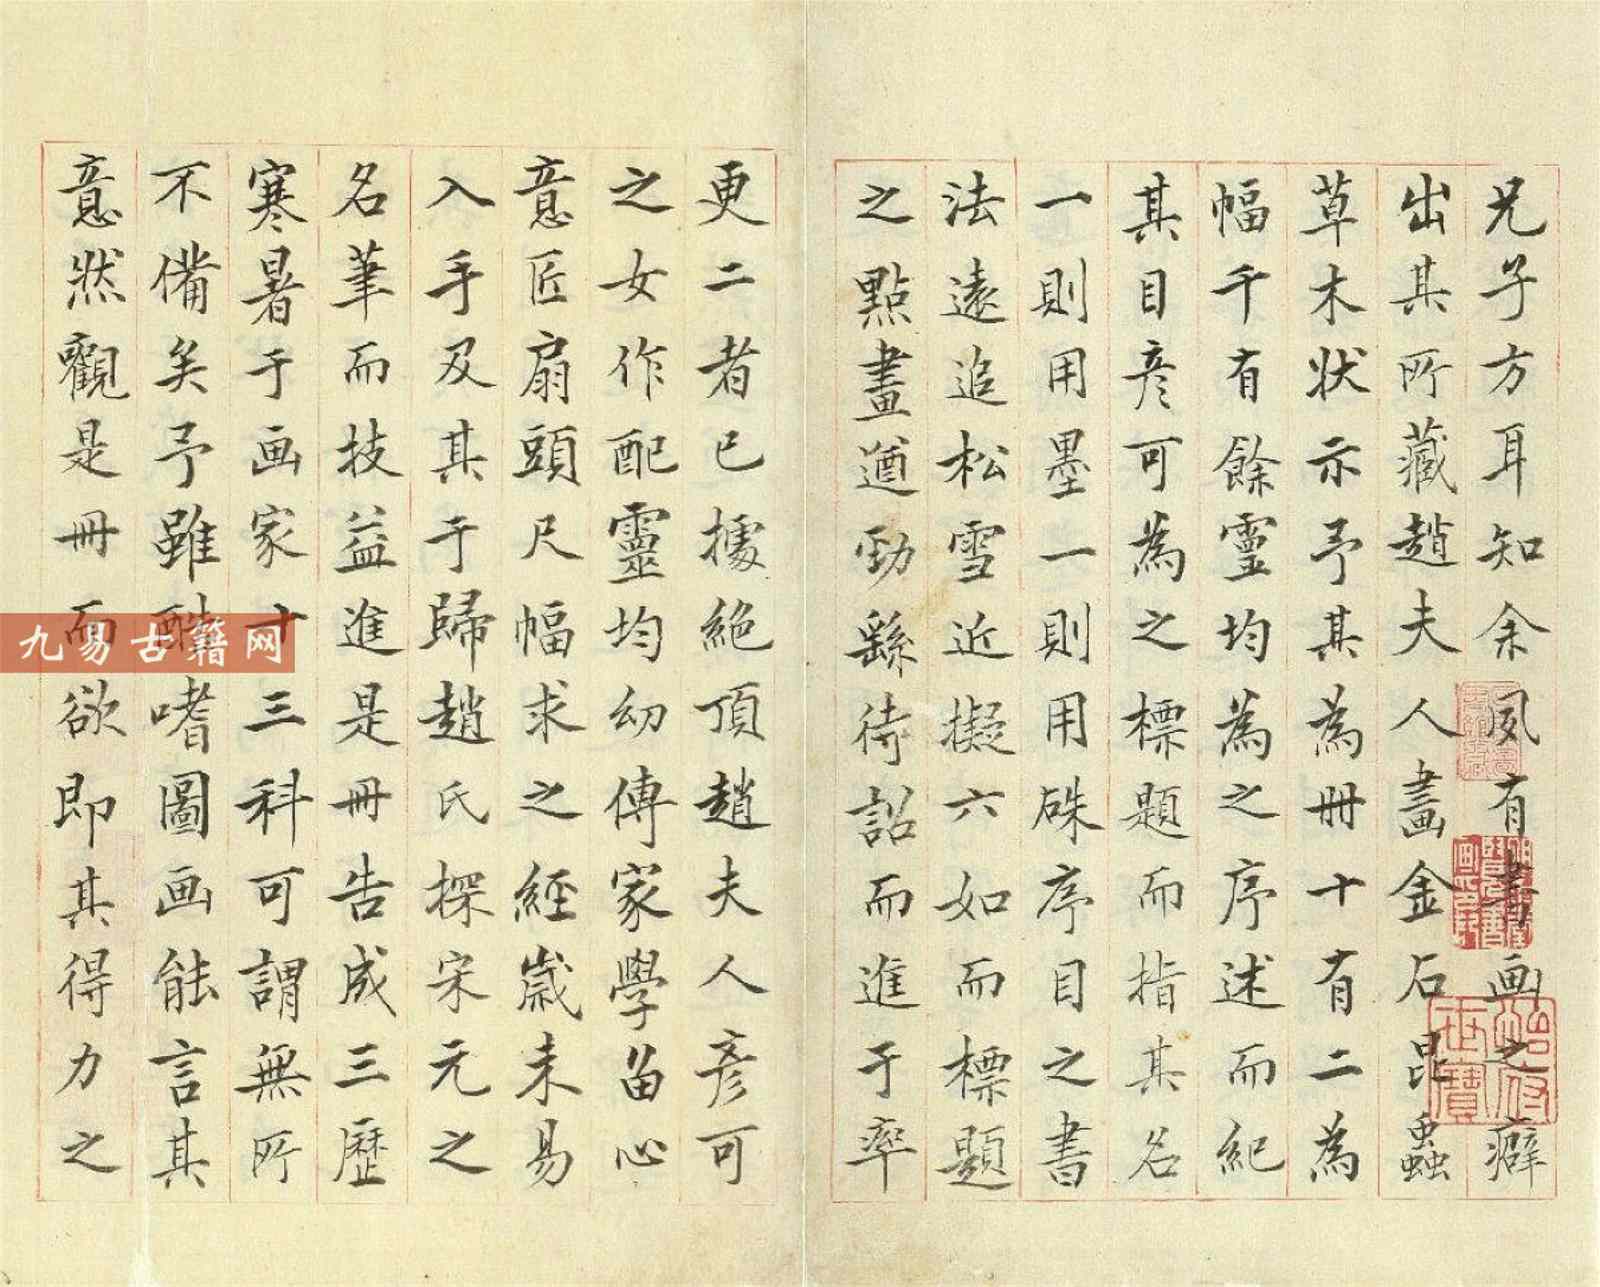 兄子方耳知余夙有書画之癖
出其所藏趙夫人畫金石昆蟲
草木状示予其為冊十有二為
幅千有餘靈均為之序述而紀
其目彦可為之標題而指其名
一則用墨一則用硃序目之書
法遠追松雪近擬六如而標題
之點畫遒勁繇待詔而進于率
更二者已擄絕頂趙夫人彦可
之女作配靈均幼傳家學畱心
意匠扇頭尺幅求之經歲未易
入手及其于歸趙氏探宋元之
名筆而技益進是冊告成三歷
寒暑于画家十三科可謂無所
不備矣予雖酷嗜圖画能言其
意然觀是冊而欲即其得力之
九易古籍网